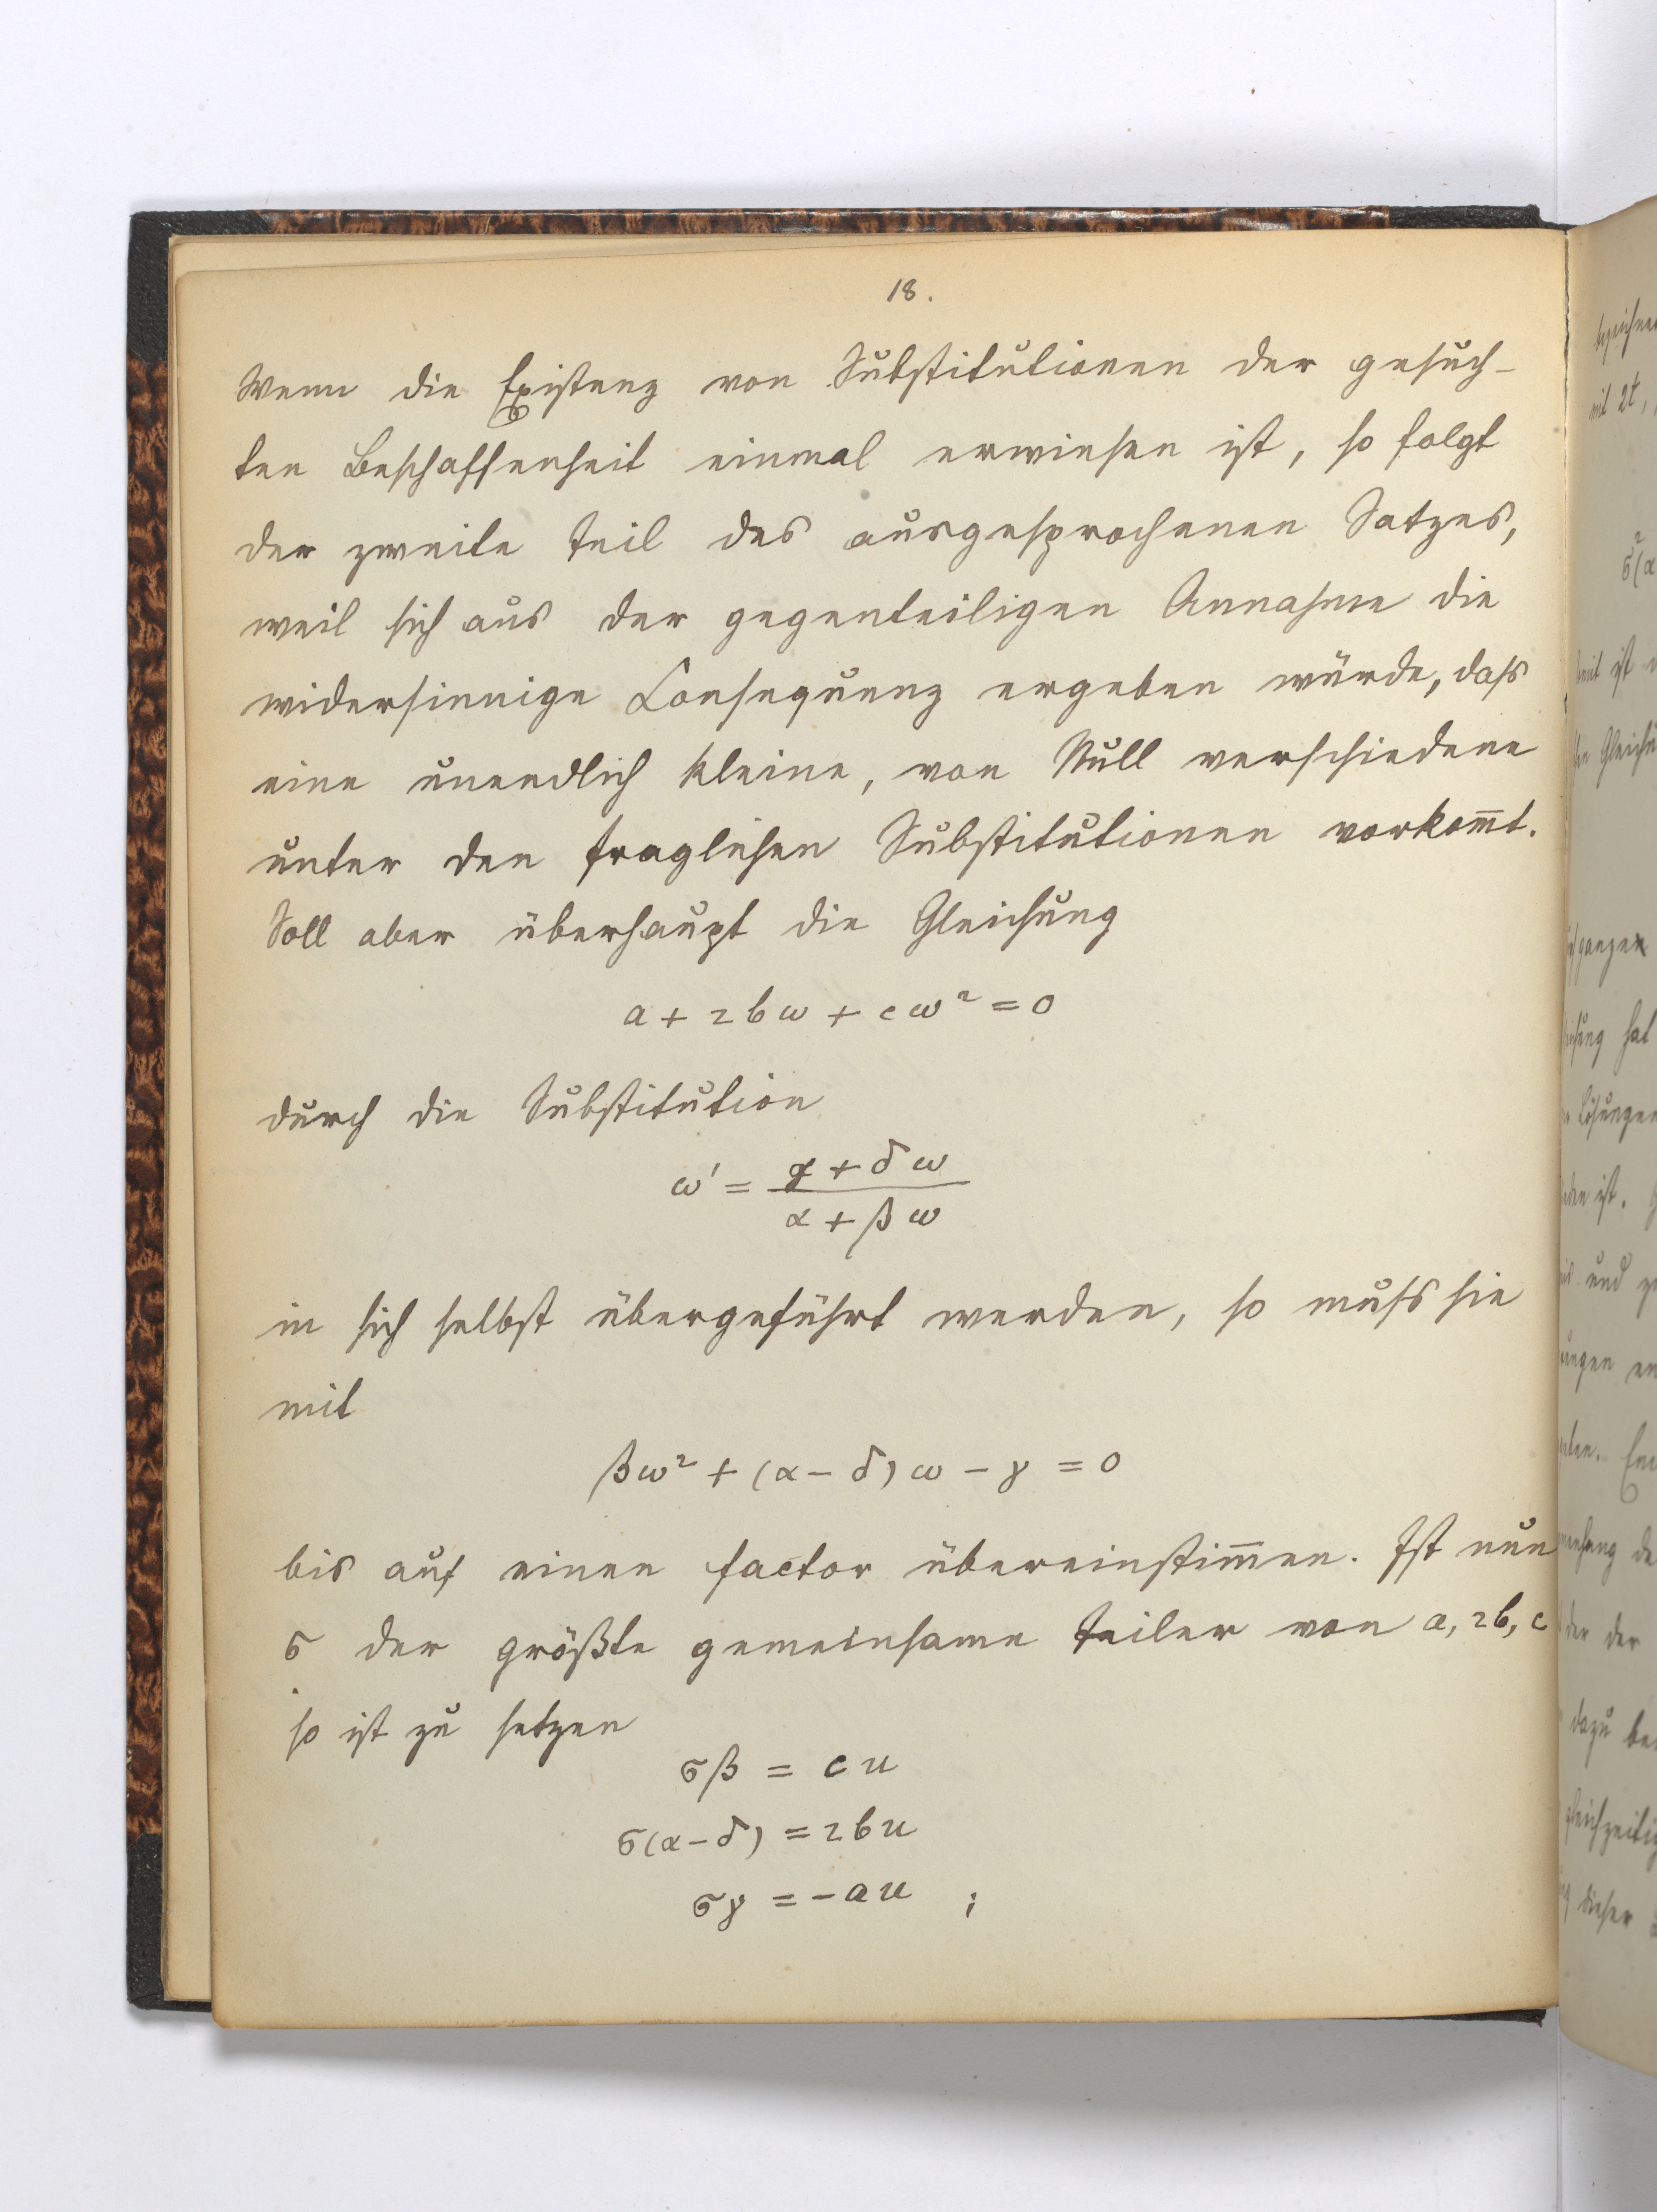 18.
Wenn die Existenz von Substitutionen der gesuch-
ten Beschaffenheit einmal erwiesen ist, so folgt
der zweite Teil des ausgesprochenen Satzes,
weil sich aus der gegenteiligen Annahme die
widersinnige Consequenz ergeben würde, dass
eine unendlich kleine, von Null verschiedene
unter den fraglichen Substitutionen vorkom̅t.
Soll aber überhaupt die Gleichung
a + 2bω + cω² = 0
durch die Substitution
ω' = (γ + δω) / (α + βω)
in sich selbst übergeführt werden, so muss sie
mit
βω² + (α − δ)ω − γ = 0
bis auf einen factor übereinstim̅en. Ist nun
σ der größte gemeinsame Teiler von a, 2b, c
so ist zu setzen
σβ = cu
σ(α−δ) = 2bu
σγ = −au ;